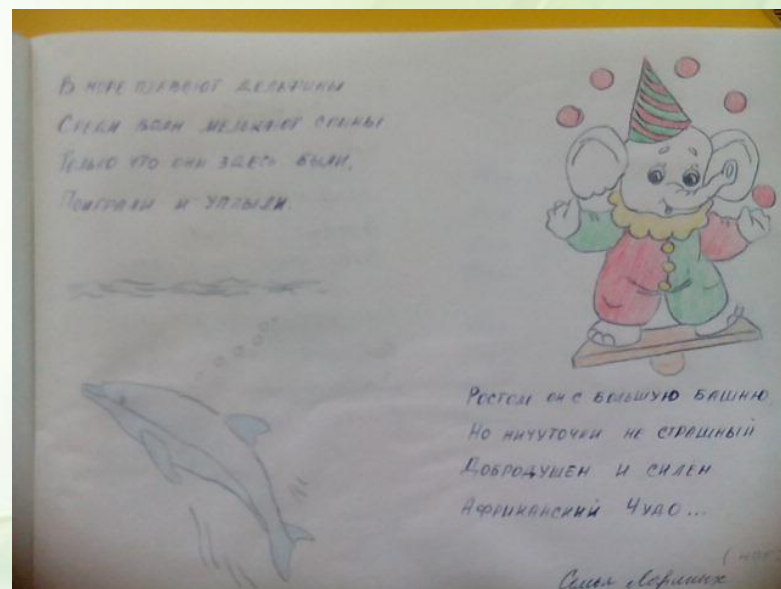 В море плавают дельфины
Среди волн мелькают спины
Только что они здесь были,
Поиграли и уплыли.
Ростом он с большую башню,
Но ничуточки не страшный
Добродушен и силён
Африканский Чудо...
Семья